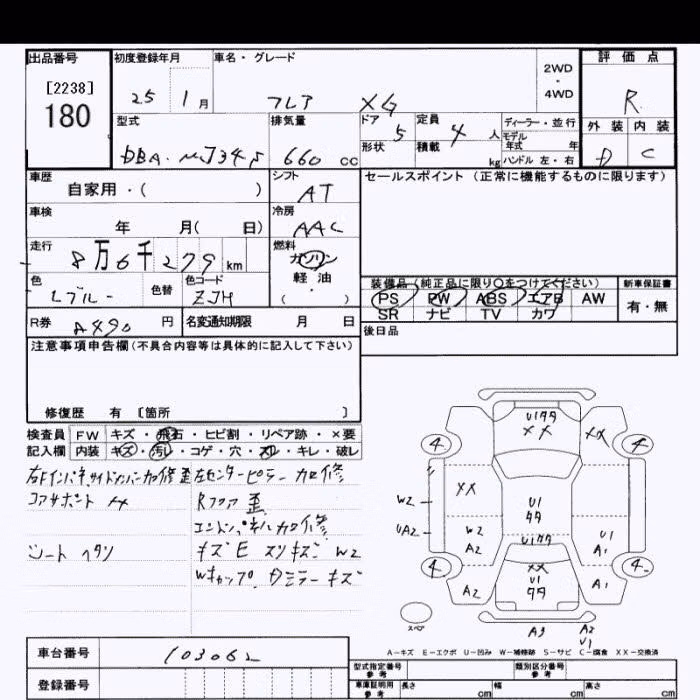 出品番号 初度登録年月 車名・グレード 2WD ・ 4WD 評価点
[2238]
180
25 1月 フレア XG R
型式 排気量 ドア 5 定員 4人 ディーラー・並行 外装 内装
モデル年式 年
DBA-MJ34S 660 cc 形状 積載 kg ハンドル 左・右 D C
車歴 シフト セールスポイント(正常に機能するものに限ります)
自家用・( ) AT
車検 冷房
年 月( 日) AAC
走行 燃料
8万6千279km ガソリン
軽油
( )
色 色替 色コード 装備品(純正品に限り○をつけてください) 新車保証書
Lブルー ZJH PS PW ABS エアB AW 有・無
SR ナビ TV カワ
R券 A490円 名変通知期限 月 日 後日品
注意事項申告欄(不具合内容等は具体的に記入して下さい)
修復歴 有 〔箇所 〕
検査員 FW キズ・飛石・ヒビ割・リペア跡・×要
記入欄 内装 キズ・汚レ・コゲ・穴・スレ・キレ・破レ
右Fインパネサイドメンバー加修歪 左センターピラー加修
コアサポート X Rフロア歪
エンドパネル加修
シートヘタリ キズE スリキズ W2
Wキャップ、Dミラーキズ
U1タタ
XX XX
4 4
XX U1
タタ
W2 UA2
W2 A2 U1タタ U1 A1
4 4
XX
U1
タタ
A2 A1
スペア
A3 A2
U1
A-キズ E-エクボ U-凹み W-補修跡 S-サビ C-腐食 XX-交換済
車台番号 103062
登録番号
型式指定番号 参考 類別区分番号 参考
車庫証明用 参考 長さ cm 幅 cm 高さ cm